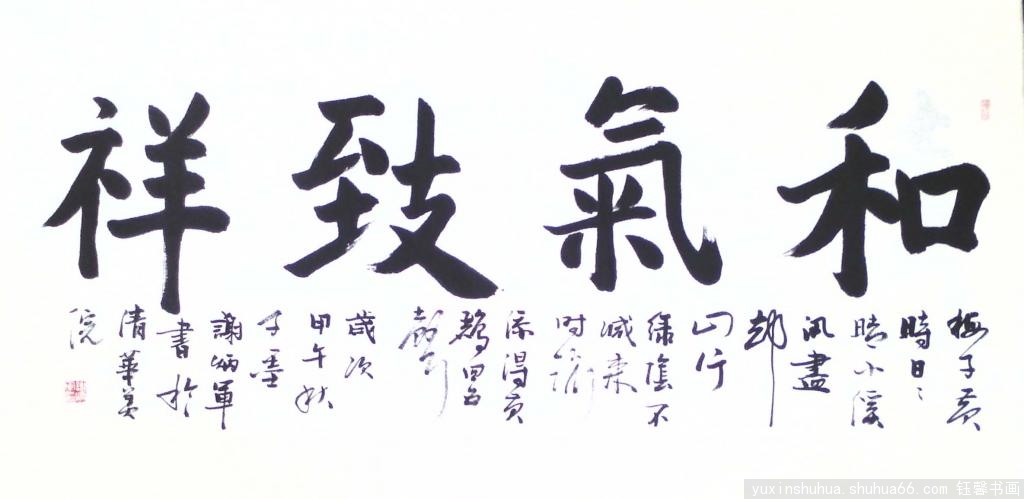 和氣致祥
梅子黄
時日々
晴小溪
汎盡
却
山行
绿陰不
减来
时路
添得黄
鹂四五
聲
歲次
甲午秋
子墨
謝炳軍
書於
清華美
院
yuxinshuhua.shuhua66.com 钰馨书画